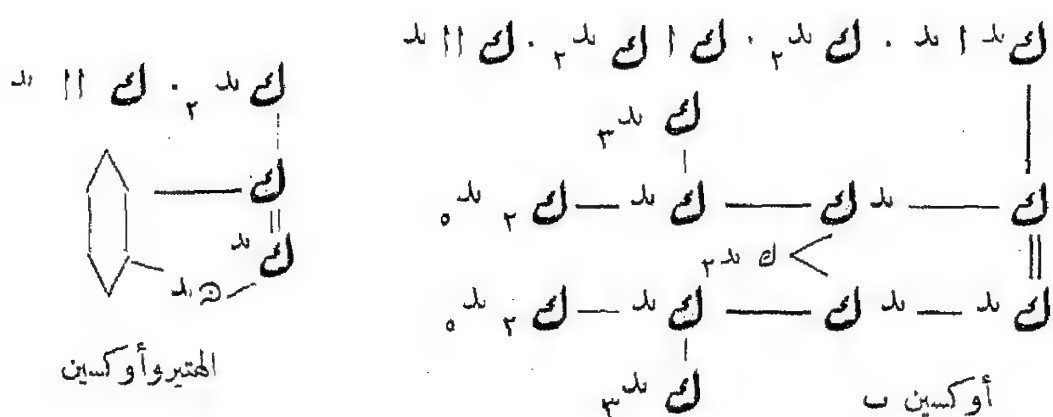 ك يد ا يد . ك يد ٢ . ك ا ك يد ٢ . ك ا ا يد
ك يد ٣
ك ك يد ك يد ك ٢ يد ٥
ك يد ٢
ك يد يد ك ك يد ك ٢ يد ٥
ك يد ٣
أوكسين ب
ك يد ٢ . ك ا ا يد
ك
ك يد
ن يد
الهتيروأوكسين